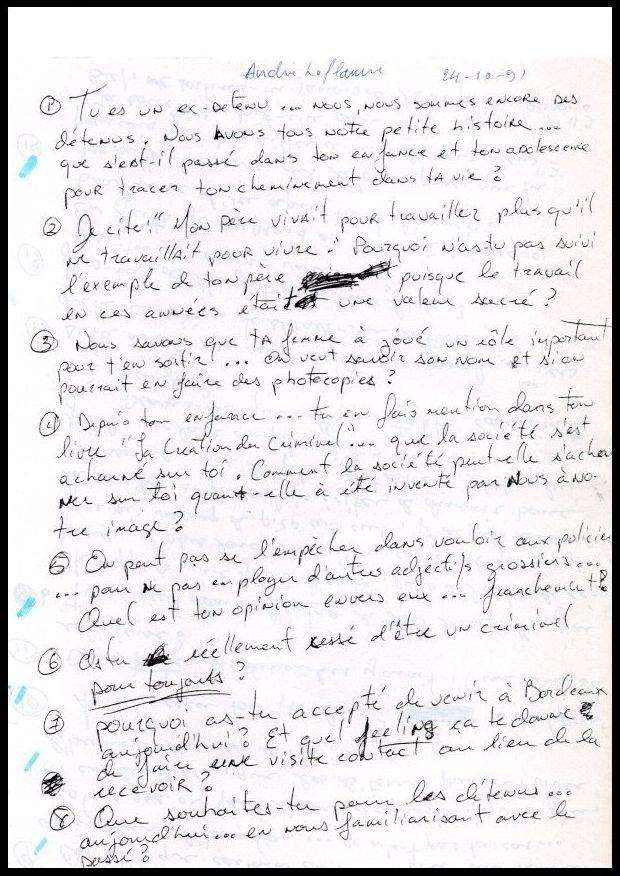 André Laflamme 24-10-91
① Tu es un ex-detenu ... nous, nous sommes encore des
détenus. Nous avons tous notre petite histoire ...
que s'est-il passé dans ton enfance et ton adolescence
pour tracer ton cheminement dans ta vie ?
② Je cite: "Mon père vivait pour travailler plus qu'il
ne travaillait pour vivre." Pourquoi n'as-tu pas suivi
l'exemple de ton père puisque le travail
en ces années était une valeur sacré ?
③ Nous savons que ta femme à joué un rôle important
pour t'en sortir! ... On veut savoir son nom et si on
pourrait en faire des photocopies ?
④ Depuis ton enfance ... tu en fais mention dans ton
livre "La Création du Criminel"... que la société s'est
acharné sur toi. Comment la société peut-elle s'achar
ner sur toi quant-elle à été inventé par nous à no-
tre image ?
⑤ On peut pas se l'empêcher dans vouloir aux policier
... pour ne pas employer d'autres adjectifs grossiers ...
Quel est ton opinion envers eux ... franchement ?
⑥ As tu réellement cessé d'être un criminel
pour toujours ?
⑦ pourquoi as-tu accepté de venir à Bordeaux
aujourd'hui ? Et quel feeling ça te donne
de faire une visite contact au lieu de la
recevoir ?
⑧ Que souhaites-tu pour les détenus ...
aujourd'hui ... en nous familiarisant avec le
passé ?